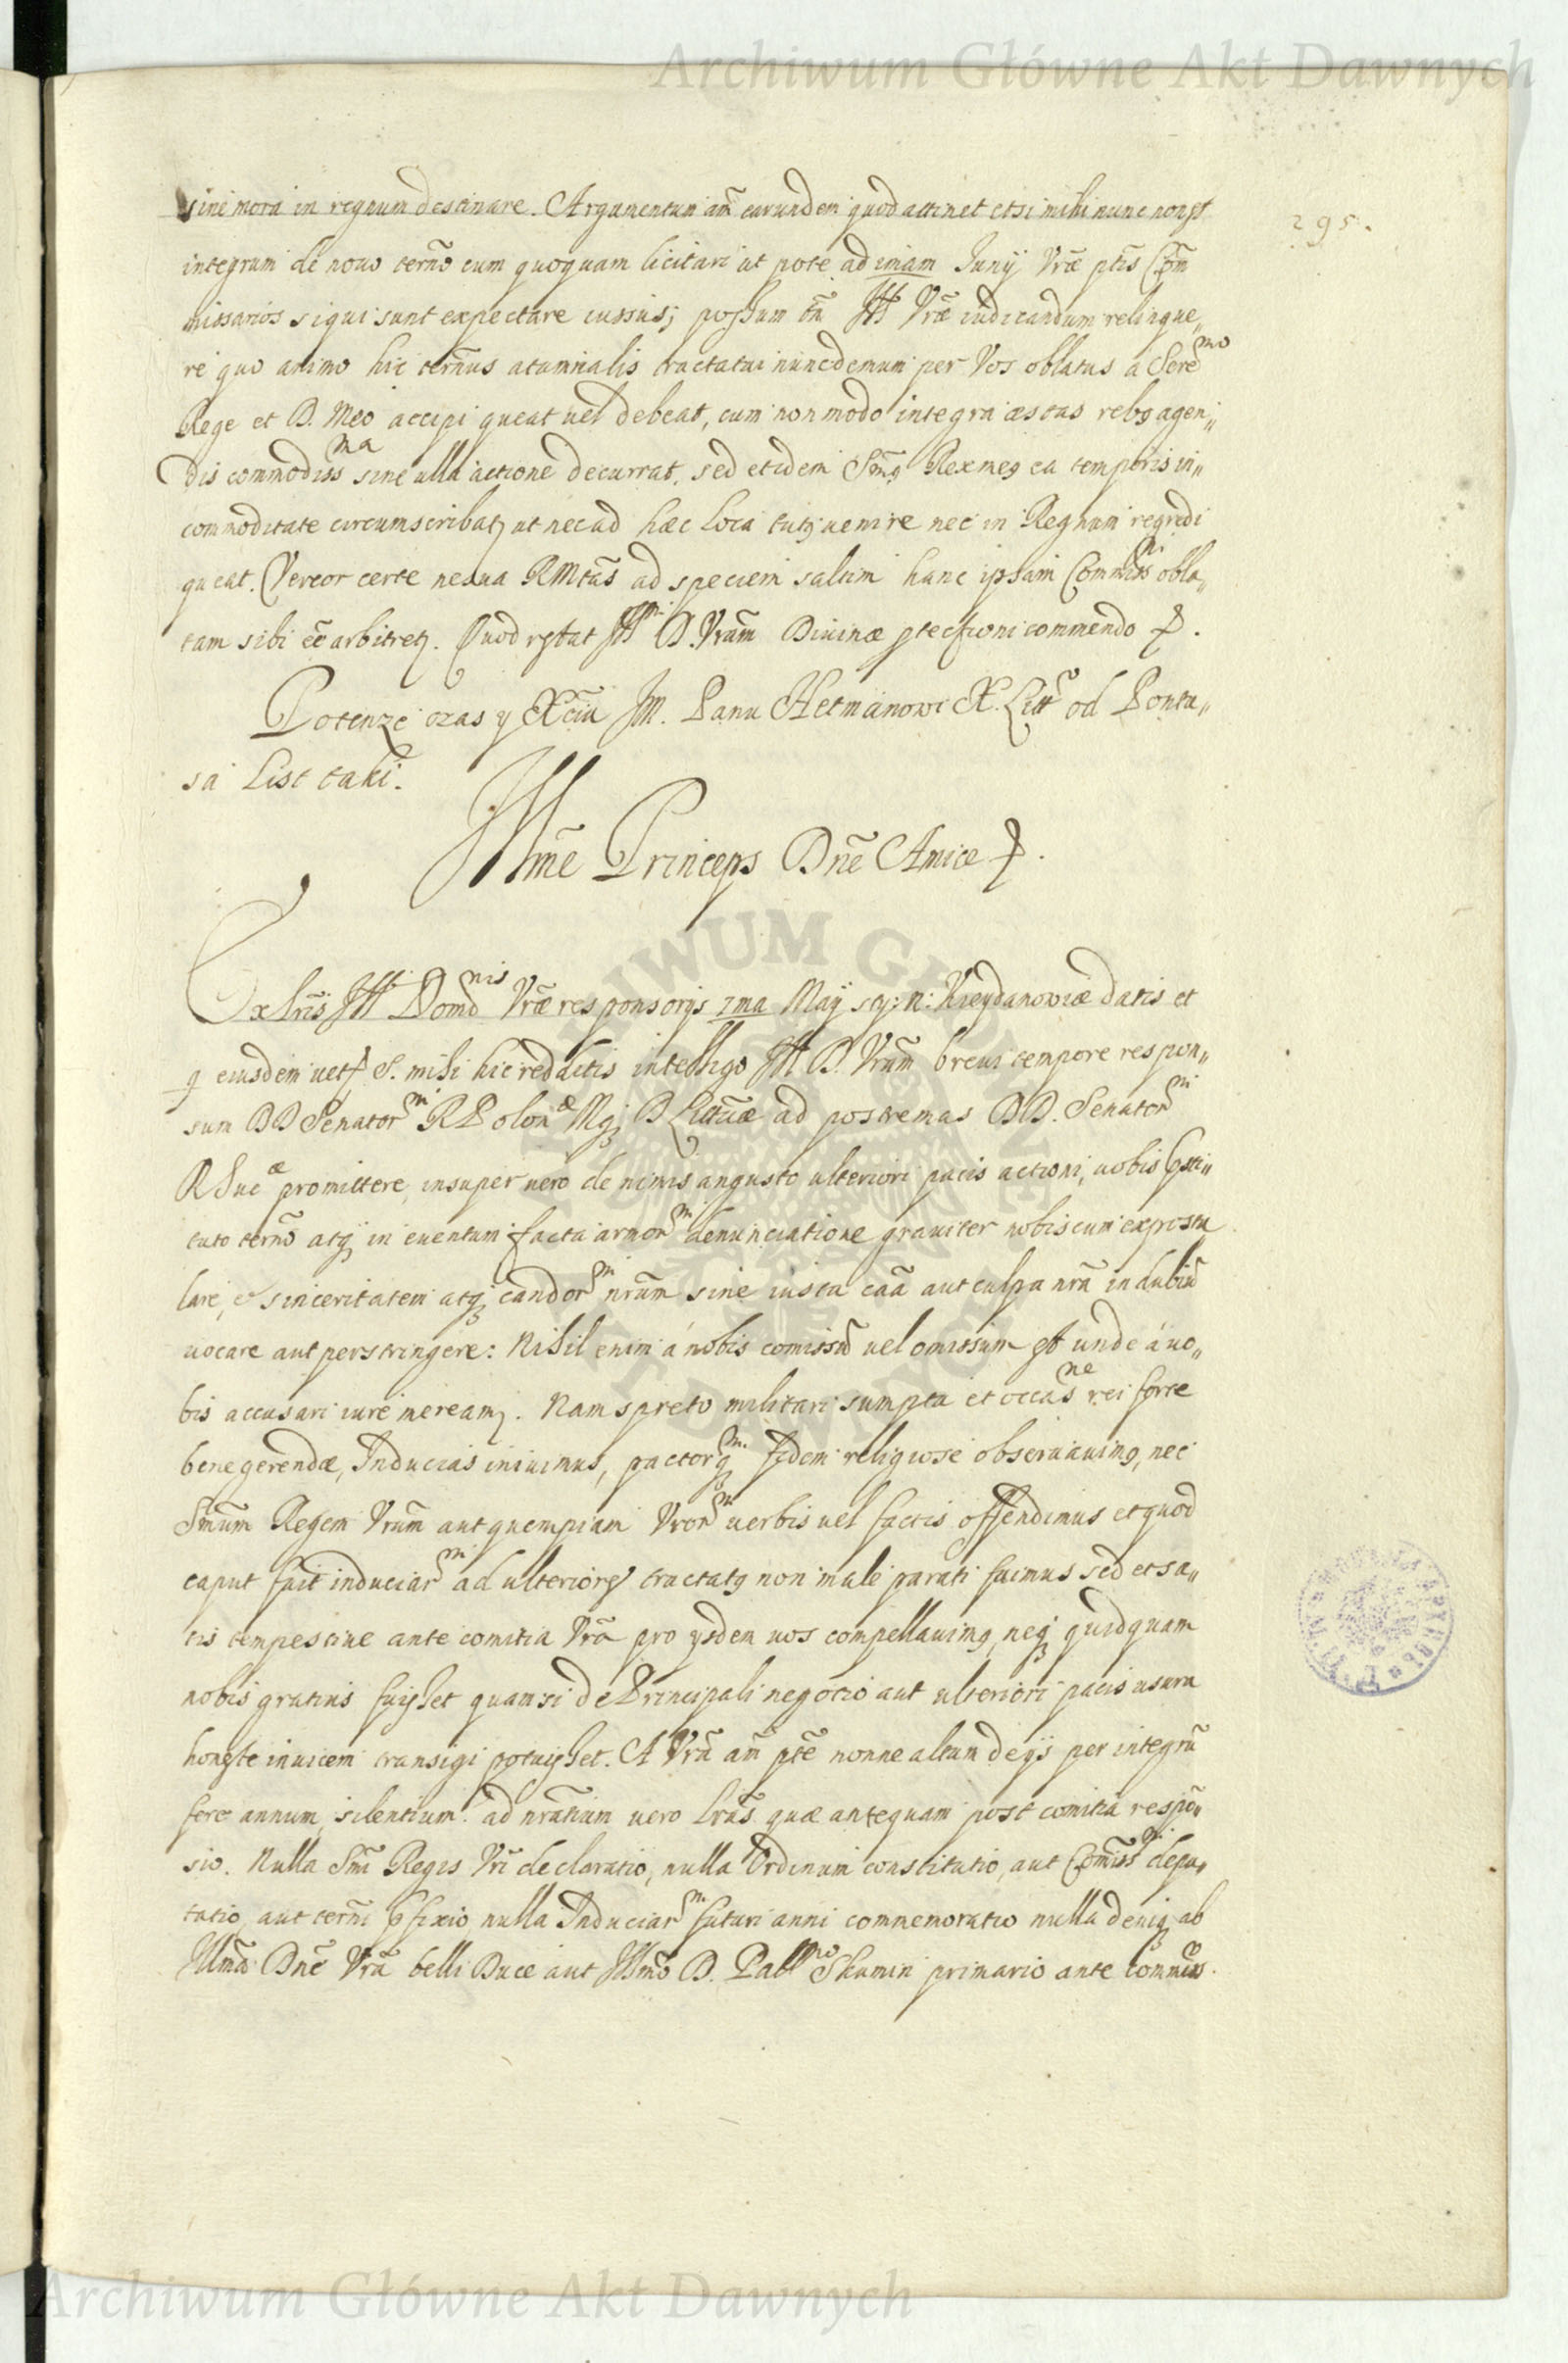 Archiwum Główne Akt Dawnych
295.
sine mora in regnum destinare. Argumentum aũt earundem quod attinet etsi mihi nunc non est
integrum de novo termõ cum quoquam licitari ut pote ad imam Junij Vrae ptis Com̃
missarios siqui sunt expectare iussus; possum tñ Ill Vrae iudicandum relinque„
re quo animo hic term̃us atumnalis tractatui nunc demum per Vos oblatus a Serẽmo
Rege et D. Meo accipi queat uel debeat, cum non modo integra æstas rebg agen„
dis commodissma sine ulla actione decurrat, sed etidem Sm̃g Rex meg ea temporis in„
commoditate circumscribat, ut nec ad hæc loca tutg uenire nec in Regnum regredi
queat. Vereor certe ne sua RMtas ad speciem saltim hanc ipsam Commissni obla„
tam sibi eẽ arbitret. Quod restat Illmi D. Vram Diuinæ ptectioni commendo.
Potenze czas y Xciu Jm. Panu Hetmanowi X. Litto od Pontu„
sa List taki.
Illmẽ Princeps Dnẽ Amice
Ex lrĩs Ill Domdnis Vræ responsorijs 7ma Maij Kieydanowiæ datis et
q eiusdem uet. S. mihi hic redditis intelligo Ill D. Vram breui tempore respon„
sum DD Senatorm RPolonæ Mgj D Littuæ ad postremas DD. Senatorm
RSueæ promittere, insuper uero de nimis angusto ulteriori pacis actioni, uobis psti„
tuto termõ atq in euentum facta armorm denunciatione grauiter nobiscum expostu
lare, & sinceritatem atq candorm nram sine iusta caã aut culpa nrã in dubiũ
uocare aut perstringere: Nihil enim á nobis comissũ uel omissum est unde á uo„
bis accusari iure meream. Nam spreto militari sumptu et occasne rei forte
bene gerendæ, Inducias iniuimus, pactorqm fidem religiose obseruauimg, nec
Smum Regem Vrum aut quempiam Vrorm uerbis uel factis offendimus et quod
caput fuit induciarm ad ulteriores tractatg non male parati fuimus sed et sa„
tis tempestiue ante comitia Vrã pro ysdem uos compellauimg, neq quidquam
nobis gratius fuisset quam si de Principali negocio aut ulteriori pacis usura
honeste inuicem transigi potuisset. A Vrã aũt ptẽ nonne altum de ijs per integrũ
fere annum, silentium. ad nratium uero lrãs quæ antequam post comitia respõ„
sio. Nulla Smi Regis Vrĩ declaratio, nulla Ordinum constitutio, aut Comissni depu„
tatio, aut termĩ pfixio nulla Induciarm futuri anni commemoratio nulla deniq ab
Illmã Dnẽ Vrã belli Duce aut Illmõ D. Pallno Skumin primario ante commiss.
Archiwum Główne Akt Dawnych